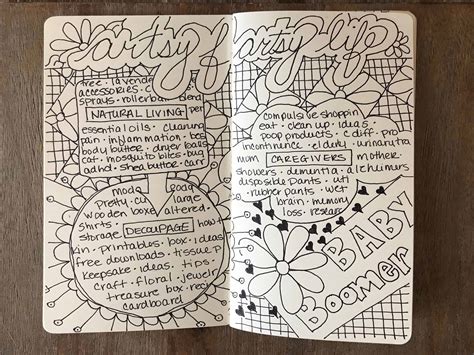 artsy farty life
free • lavender
accessories •
sprays • rollerball • blend
NATURAL LIVING
essential oils • cleaning
pain • inflammation • bee
body butter • dryer balls
cat • mosquito bites • bug
adhd • shea butter • card
mode
pretty • cu large
wooden boxes altered •
shirts •
storage DECOUPAGE how t
in • printables • box • ideas
free downloads • tissue p
keepsake • ideas • tips
craft • floral • jewelr
treasure box •
cardboard
compulsive shoppin
eat • clean up • ideas
poop products • c diff • pro
incontinence • elderly • urinary tra
mom CAREGIVERS mother
showers • dementia • alzheimers
disposible pants • uti
rubber pants • wet
brain • memory
loss • resear
BABY
Boomer